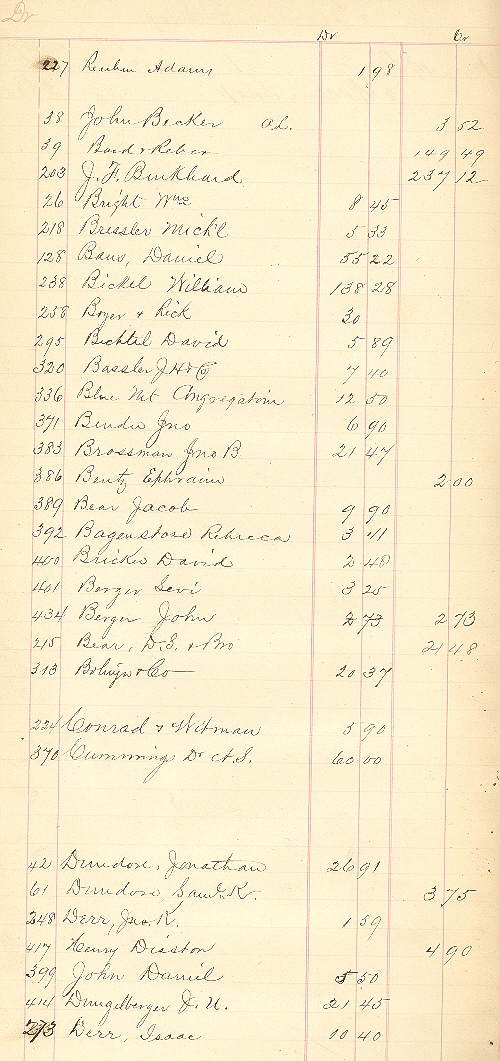 Dr
Dr Cr
227 Reuben Adams 1 98
38 John Becker O.L. 3 52
39 Bard & Reber 149 49
203 J. F. Burkhard 237 12
26 Bright Wm 8 45
218 Bressler Mich'l 5 33
128 Baus, Daniel 55 22
238 Bickel William 138 28
258 Boyer & Rick 30
295 Bechtel David 5 89
320 Bassler J H & Co 7 40
336 Blue Mt Congregation 12 50
371 Bender Jno 6 90
383 Brossman Jno B 21 47
386 Bentz Ephraim 2 00
389 Bear Jacob 9 90
392 Bagenstose Rebecca 3 41
400 Bricker David 2 48
401 Berger Levi 3 25
434 Berger John 2 73 2 73
215 Bear, D.S. & Bro 21 48
313 & Co 20 37
224 Conrad & Witman 5 90
370 Cummings Dr A.S. 60 00
42 Dundore, Jonathan 26 91
61 Dundore, Saml. K. 3 75
248 Derr, Jno. K. 1 59
417 Henry Disston 4 90
399 John Daniel 5 50
414 Dungelberger J. U. 21 45
273 Derr, Isaac 10 40